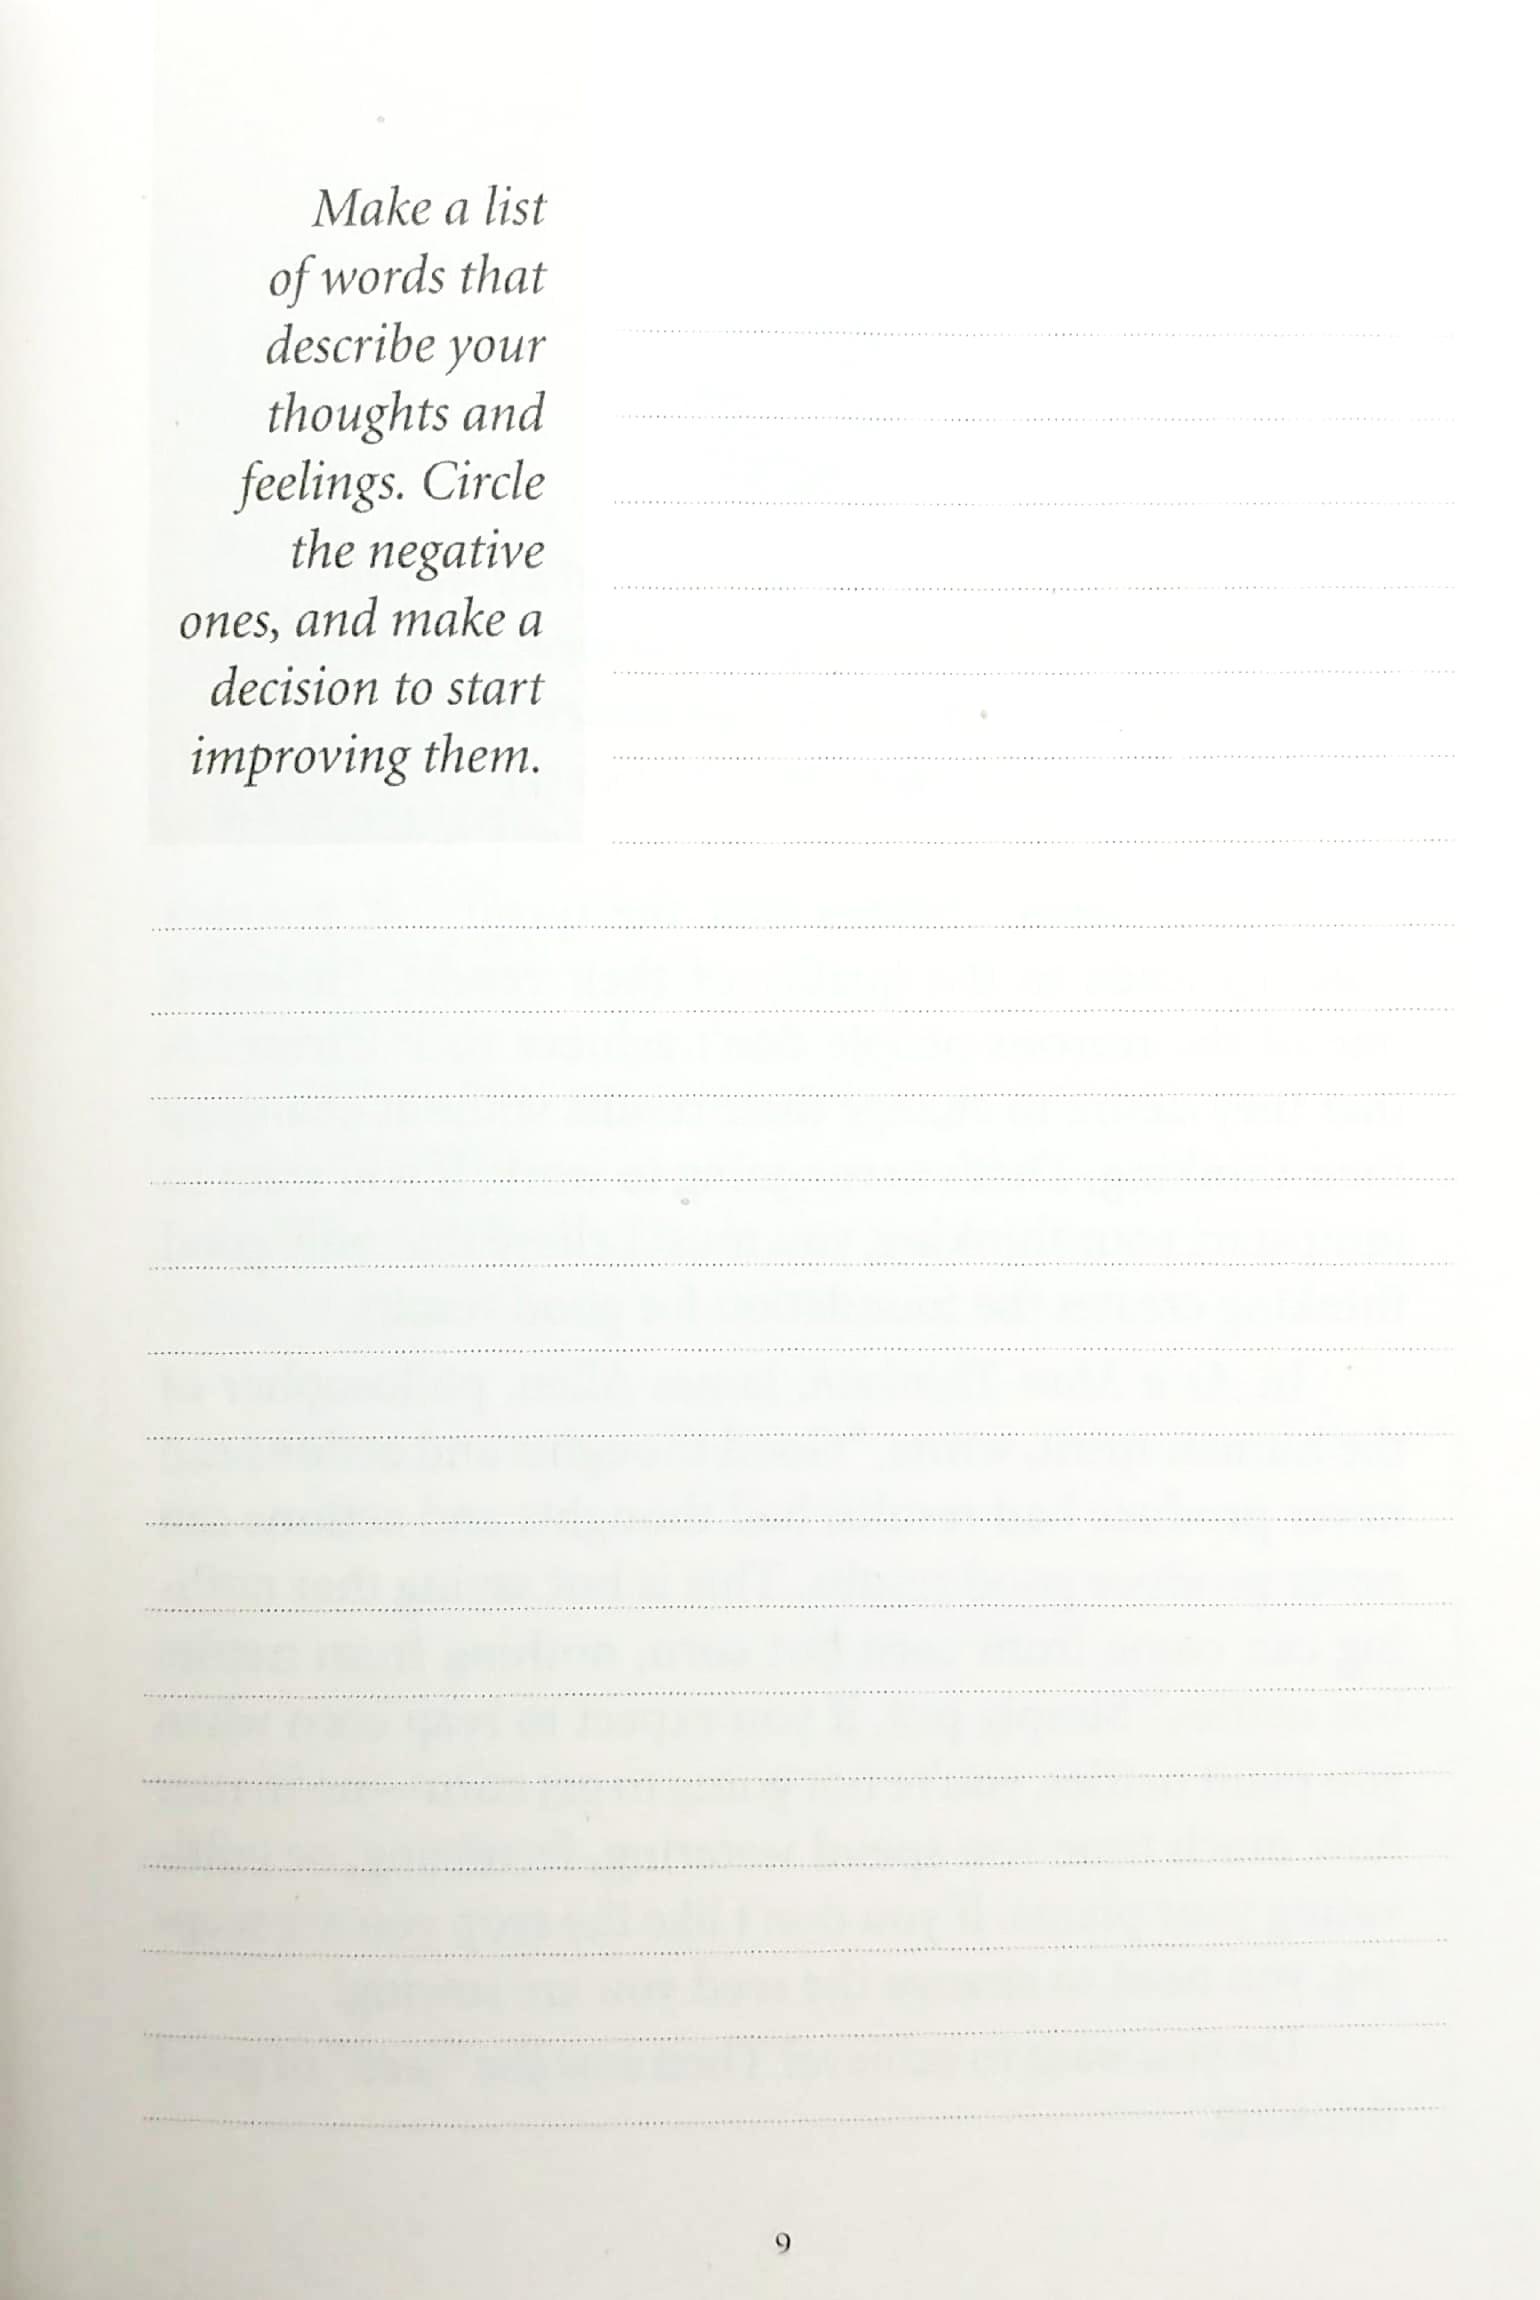 Make a list
of words that
describe your
thoughts and
feelings. Circle
the negative
ones, and make a
decision to start
improving them.
9